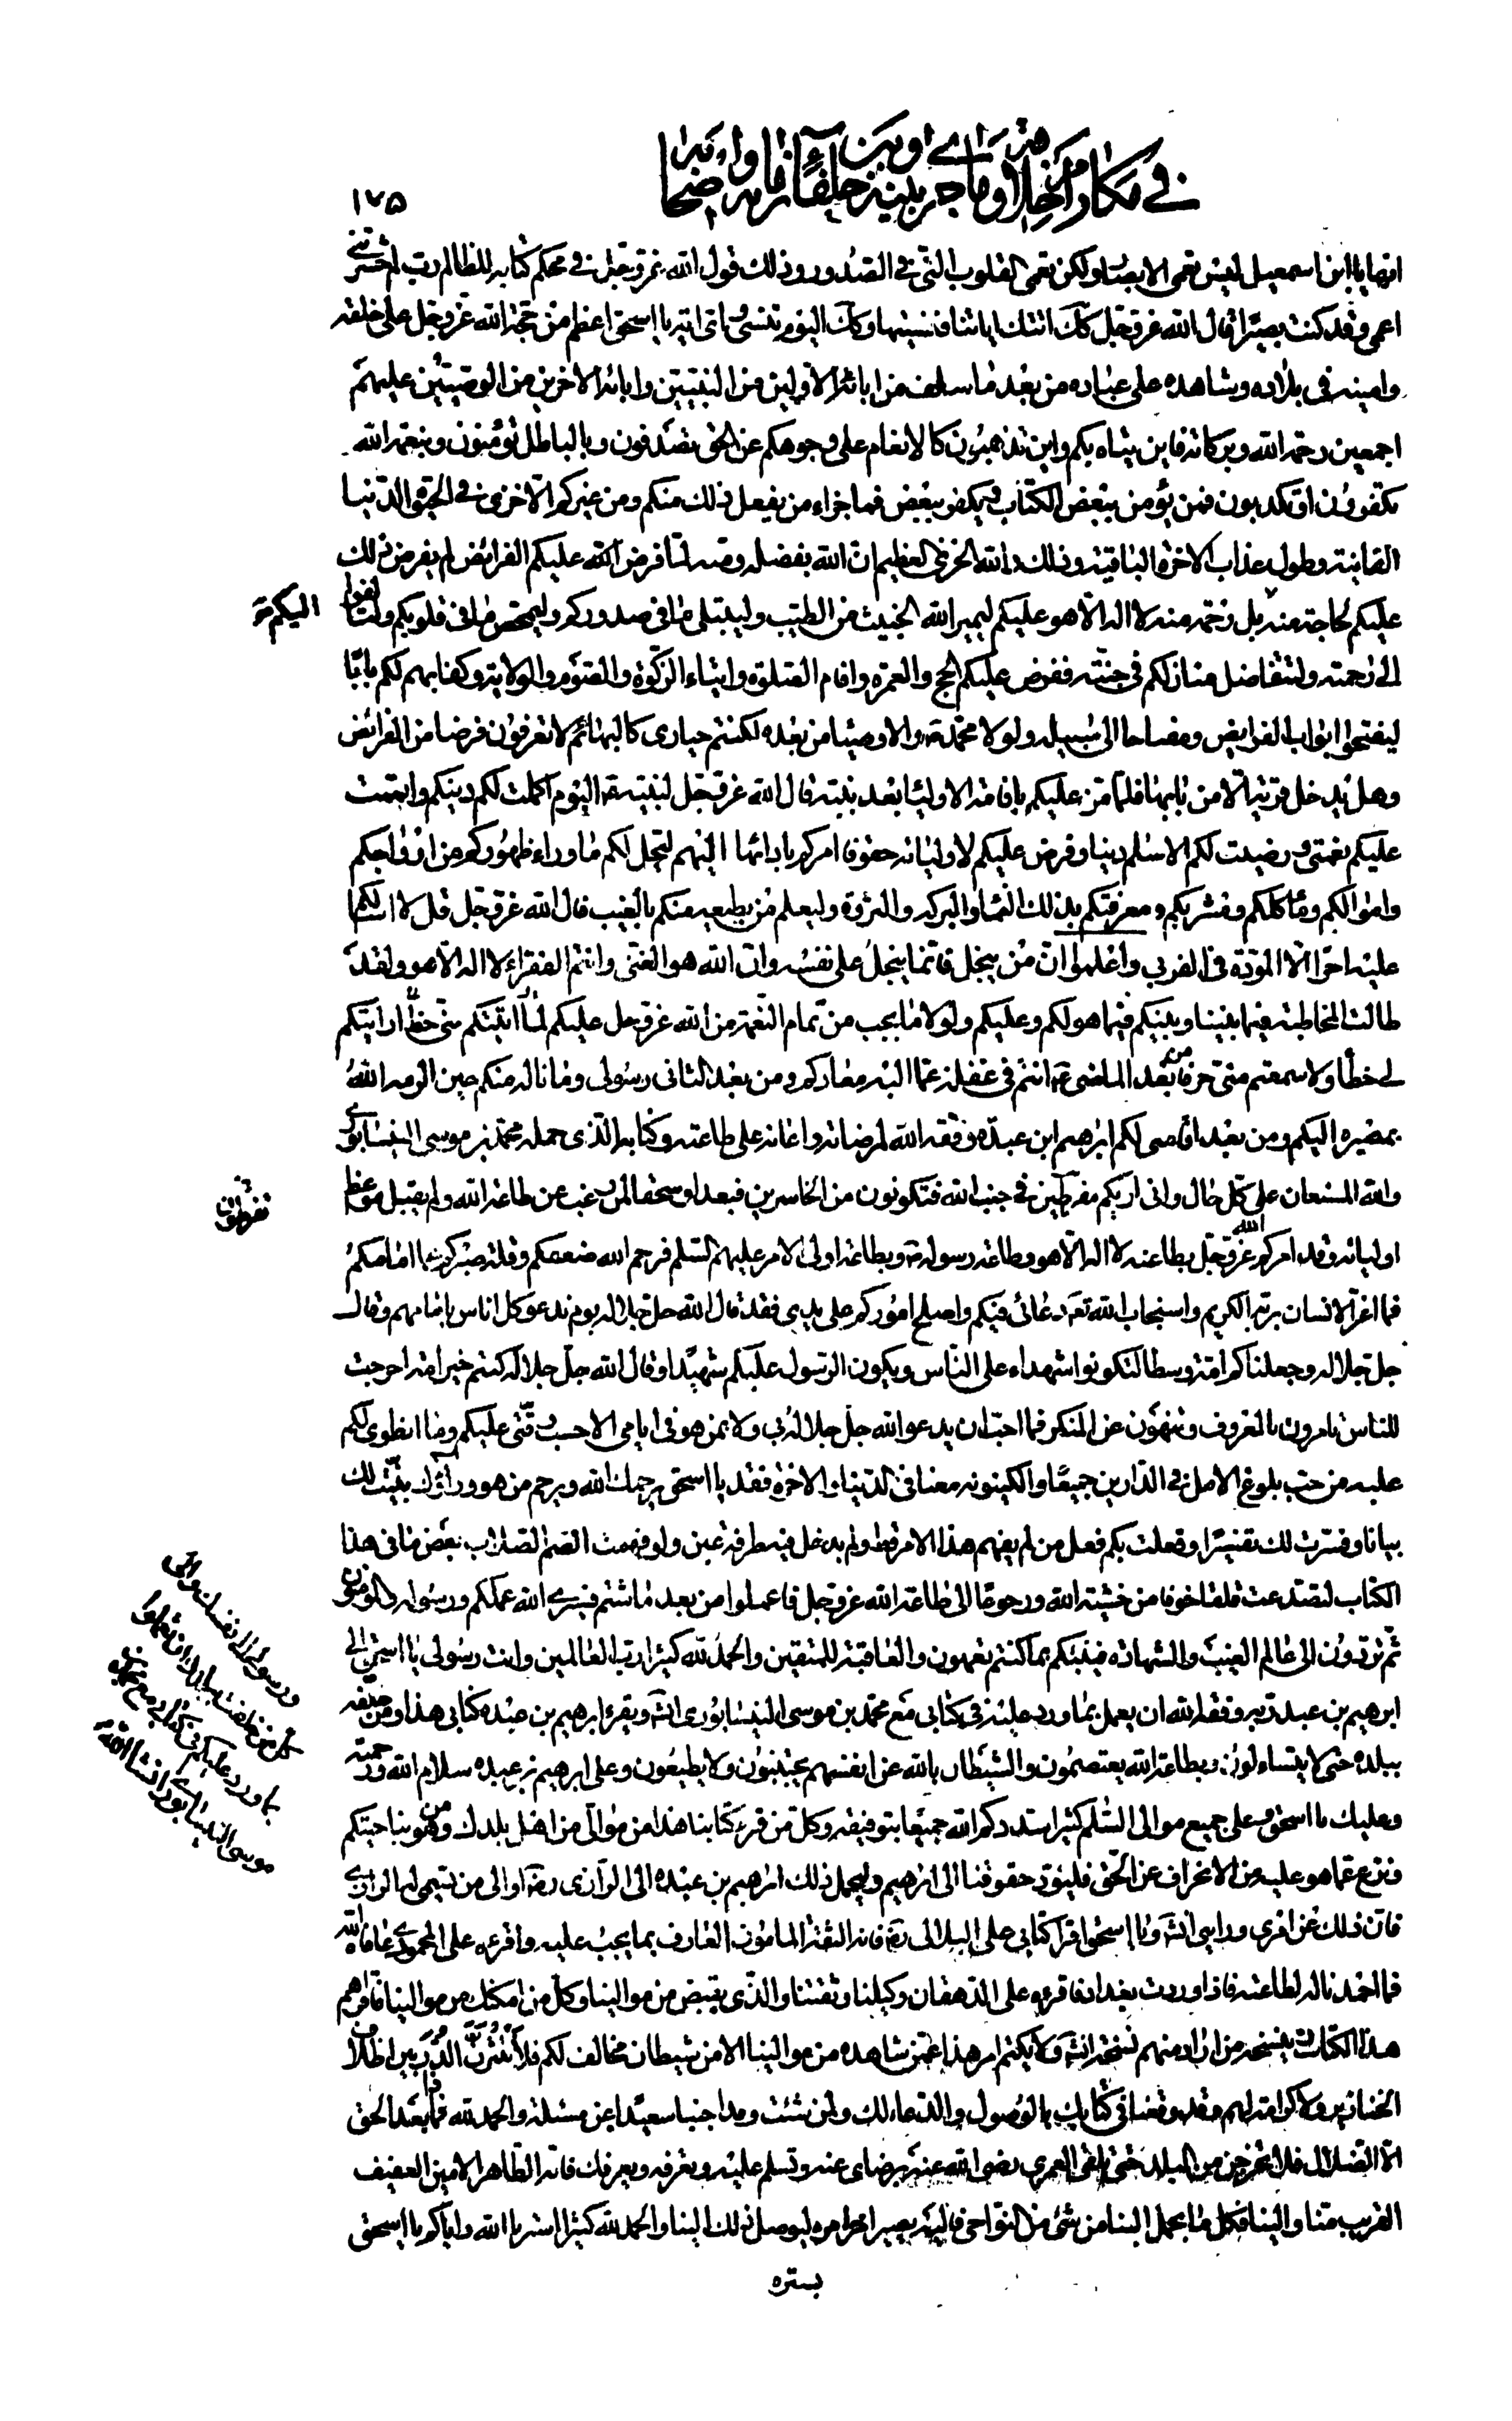 في مكارم اخلاقه وما جرى بينه وبين خلفاء زمانه واصحابه
١٧٥
انها يا ابن اسمعيل ليس تعمى الابصار ولكن تعمى القلوب التي في الصدور وذلك قول الله عز وجل في محكم كتابه للظالم رب لم حشرتني
اعمى وقد كنت بصيرا قال الله عز وجل كذلك اتتك اياتنا فنسيتها وكذلك اليوم تنسى واي اية يا اسحق اعظم من حجة الله عز وجل على خلقه
وامينه في بلاده وشاهده على عباده من بعد ما سلف من ابائه الاولين من النبيين وابائه الاخرين من الوصيين عليهم
اجمعين رحمة الله وبركاته فاين يتاه بكم واين تذهبون كالانعام على وجوهكم عن الحق تصدفون وبالباطل تؤمنون وبنعمة الله
تكفرون او تكذبون فمن يؤمن ببعض الكتاب ويكفر ببعض فما جزاء من يفعل ذلك منكم ومن غيركم الا خزى في الحيوة الدنيا
الفانية وطول عذاب الاخرة الباقية وذلك والله الخزي العظيم ان الله بفضله ومنه لما فرض عليكم الفرائض لم يفرض ذلك
عليكم لحاجة منه بل رحمة منه لا اله الا هو عليكم ليميز الله الخبيث من الطيب وليبتلى ما في صدوركم وليمحص ما في قلوبكم ولتألفوا
اليكم
الى رحمته ولتتفاضل منازلكم في جنته ففرض عليكم الحج والعمرة واقام الصلوة وايتاء الزكوة والصوم والولاية وكفا بهم لكم بابا
ليفتحوا ابواب الفرايض ومفتاحا الى سبيله ولولا محمد والاوصيا من بعده لكنتم حيارى كالبهائم لا تعرفون فرضا من الفرائض
وهل يدخل قرية الا من بابها فلما من عليكم باقامة الاوليا بعد نبيه قال الله عز وجل لنبيه اليوم اكملت لكم دينكم واتممت
عليكم نعمتي ورضيت لكم الاسلم دينا وفرض عليكم لاوليائه حقوقا امركم بادائها اليهم ليحل لكم ما وراء ظهوركم من ازواجكم
واموالكم ومآكلكم ومشربكم ومعرفتكم بذلك النماء والبركة والثروة وليعلم من يطيعه منكم بالغيب قال الله عز وجل قل لا اسئلكم
عليه اجرا الا المودة في القربى واعلموا ان من يبخل فانما يبخل على نفسه وان الله هو الغنى وانتم الفقراء لا اله الا هو ولقد
طالت المخاطبة فيما بيننا وبينكم فيما هو لكم وعليكم ولولا ما يجب من تمام النعمة من الله عز وجل عليكم لما اتيتكم مني خطا ارايتكم
لي خطا ولا سمعتم مني حرفا من بعد الماضي انتم في غفلة عما اليه معادكم ومن بعد الثاني رسولي وما ناله منكم حين اكرمه الله
بمصيره اليكم ومن بعد اقامتي لكم ابرهيم ابن عبدة وفقه الله لمرضاته واعانه على طاعته وكتابه الذي حمله محمد بن موسى النيسابوري
والله المستعان على كل حال واني اريكم مفرطين في جنب الله فتكونون من الخاسرين فبعدا وسحقا لمن رغب عن طاعة الله ولم يقبل مواعظ
تفرطون
اوليائه وقد امركم الله عز وجل بطاعته لا اله الا هو وطاعة رسوله وبطاعة اولي الامر عليهم السلم فرحم الله ضعفكم وقلة صبركم عما امامكم
فما اغر الانسان بربه الكريم واستجاب الله تعالى دعائي فيكم واصلح اموركم على يدي فقد قال الله جل جلاله يوم ندعو كل اناس بامامهم وقال
جل جلاله وجعلناكم امة وسطا لتكونوا شهداء على الناس ويكون الرسول عليكم شهيدا وقال الله جل جلاله كنتم خير امة اخرجت
للناس تامرون بالمعروف وتنهون عن المنكر فما احب ان يدعو الله جل جلاله بي ولا بمن هو في ايامي الا حسب رقتي عليكم وما انطوى لكم
عليه من حب بلوغ الامل في الدارين جميعا والكينونة معنا في الدنيا والاخرة فقد يا اسحق يرحمك الله ويرحم من هو وراءك بينت لك
بيانا وفسرت لك تفسيرا وفعلت بكم فعل من لم يفهم هذا الامر قط ولم يدخل فيه طرفة عين ولو فهمت الصم الصلاب بعض ما في هذا
الكتاب لتصدعت قلقا خوفا من خشية الله ورجوعا الى طاعة الله عز وجل فاعملوا من بعد ما شئتم فسيرى الله عملكم ورسوله والمؤمنون
ثم تردون الى عالم الغيب والشهادة فينبئكم بما كنتم تعملون والعاقبة للمتقين والحمد لله كثيرا رب العالمين وانت رسولي يا اسحق الى
ابرهيم بن عبدة وفقه الله ان يعمل بما ورد عليه في كتابي مع محمد بن موسى النيسابوري انشاء ويقرء ابرهيم بن عبده كتابي هذا ومن خلفه
ورسولي الى نفسك والى
كل من خلفت ببلدك ان تعملوا
بما ورد عليكم في كتابي مع محمد بن
موسى النيسابوري انشاء الله
ببلده حتى لا يتساءلون وبطاعة الله يعتصمون والشيطان بالله عن انفسهم يجتنبون ولا يطيعون وعلى ابرهيم بن عبده سلام الله ورحمته
وعليك يا اسحق وعلى جميع موالي السلم كثيرا سددكم الله جميعا بتوفيقه وكل من قرء كتابنا هذا من موالي من اهل بلدك ومن هو بناحيتكم
ونزع عما هو عليه من الانحراف عن الحق فليؤد حقوقنا الى ابرهيم وليحمل ذلك ابرهيم بن عبده الى الرازى او الى من يسمى له الرازي
فان ذلك عن امري ورايى انشاء ويا اسحق اقرا كتابي على البلالى فانه الثقة المامون العارف بما يجب عليه واقرءه على المحمودي عافاه الله
فما احمدنا له لطاعته فاذا وردت بغداد فاقرءه على الدهقان وكيلنا وثقتنا والذي يقبض من موالينا وكل من امكنك من موالينا فاقراهم
هذا الكتاب وينسخه من اراد منهم نسخة انشاء ولا يكتم امر هذا عمن شاهده من موالينا الا من شيطان مخالف لكم فلا تنثرن الدر بين اظلاف
الخنازير ولا كرامة لهم وقد وقعنا في كتابك بالوصول والدعاء لك ولمن شئت وقد اجبنا سعيدا عن مسئلته والحمد لله فما بعد الحق
الا الضلال فلا تخرجن من البلد حتى تلقى العمري رضى الله عنه برضاى عنه وتسلم عليه وتعرفه ويعرفك فانه الطاهر الامين العفيف
القريب منا والينا فكل ما يحمل الينا من شئ من النواحى فاليه يصير اخر امره ليوصل ذلك الينا والحمد لله كثيرا سترنا الله واياكم يا اسحق
بستره